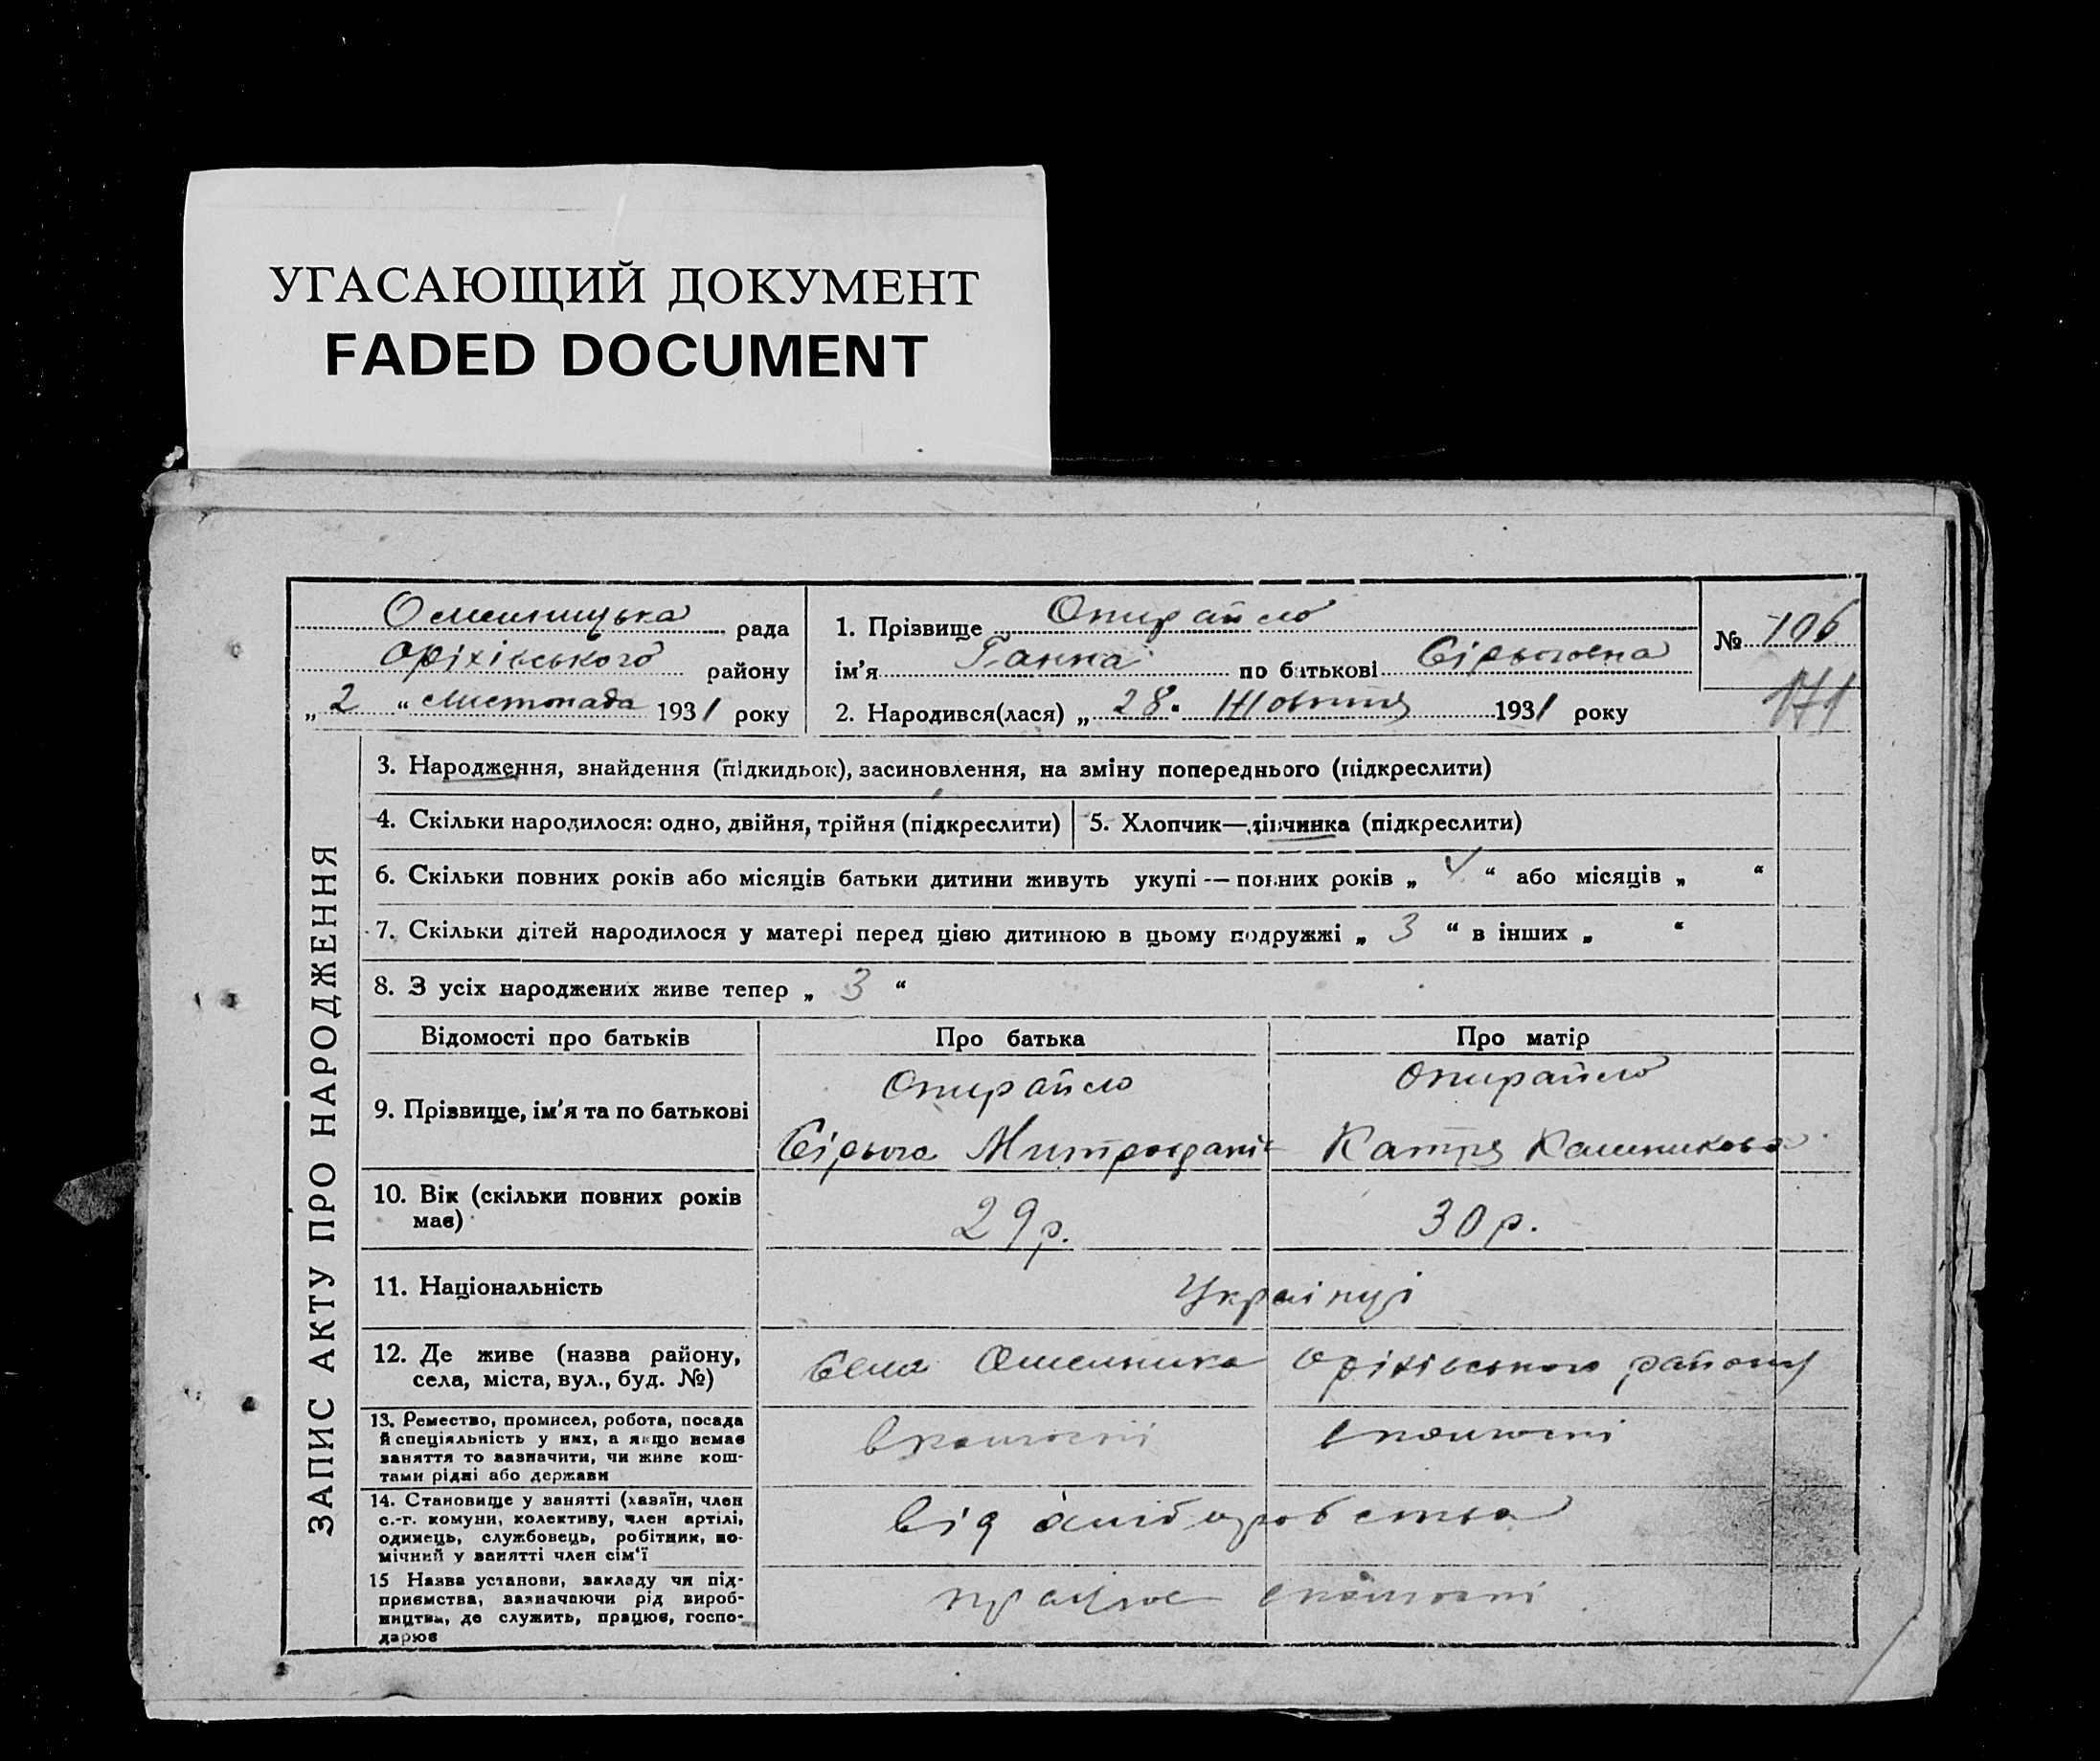 УГАСАЮЩИЙ ДОКУМЕНТ
FADED DOCUMENT
Омельницька рада
Оріхівського району
„ 2 “ Листопада 1931 року
1. Прізвище Опирайло
ім’я Ганна по батькові Сірьогова
2. Народився(лася) „ 28 “ Жовтня 1931 року
№ 106
171
ЗАПИС АКТУ ПРО НАРОДЖЕННЯ
3. Народження, знайдення (підкидьок), засиновлення, на зміну попереднього (підкреслити)
4. Скільки народилося: одно, двійня, трійня (підкреслити)
5. Хлопчик—дівчинка (підкреслити)
6. Скільки повних років або місяців батьки дитини живуть укупі — повних років „ “ або місяців „ “
7. Скільки дітей народилося у матері перед цією дитиною в цьому подружжі „ 3 “ в інших „ “
8. З усіх народжених живе тепер „ 3 “
Відомості про батьків
Про батька
Про матір
9. Прізвище, ім’я та по батькові
Опирайло
Сірьога
Опирайло
Катря
10. Вік (скільки повних років
має)
29 р.
30 р.
11. Національність
Українці
12. Де живе (назва району,
села, міста, вул., буд. №)
Села Омельника Оріхівського району
13. Ремество, промисел, робота, посада
й спеціяльність у них, а якщо немає
заняття то вазначити, чи живе кош-
тами рідні або держави
14. Становище у занятті (хазяїн, член
с.-г. комуни, колективу, член артілі,
одинець, службовець, робітник, по-
мічний у занятті член сім’ї
від
15 Назва установи, закладу чи під-
приємства, зазначаючи рід вироб-
ництва, де служить, працює, госпо-
дарює
працює